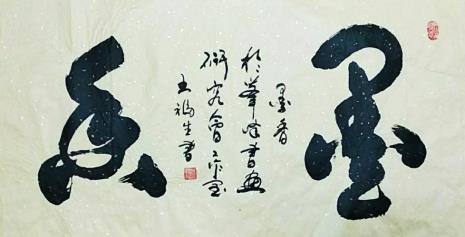 墨香
墨香
於華峰書畫
研究會
王福生書